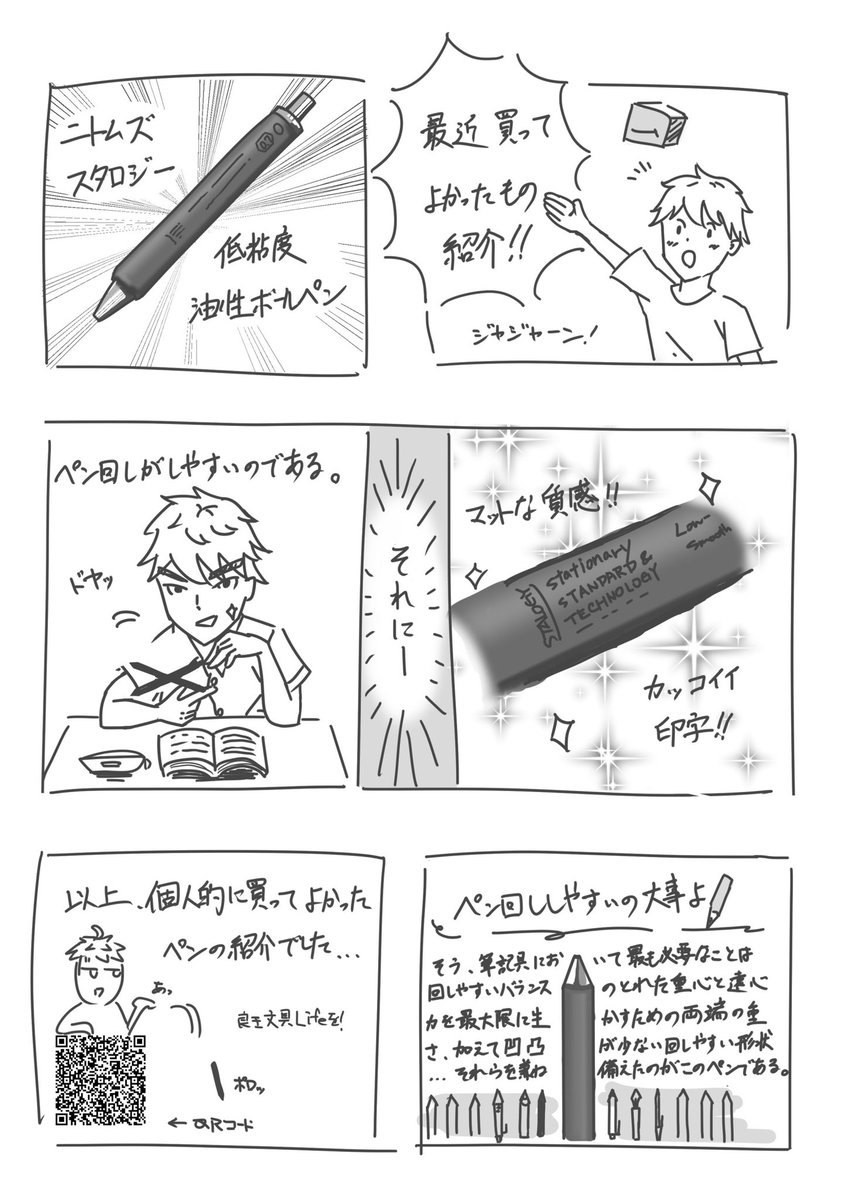 最近買って
よかったもの
紹介!!
ジャジャーン!
ニトムズ
スタロジー
0.7
低粘度
油性ボールペン
マットな質感!!
STALOGY
stationary
STANDARD &
TECHNOLOGY
Low-
smooth
カッコイイ
印字!!
それにー
ペン回しがしやすいのである。
ドヤッ
ペン回ししやすいの大事よ
そう、筆記具において最も必要なことは
回しやすいバランスのとれた重心と遠心
力を最大限に生かすための両端の重
さ、加えて凹凸が少ない回しやすい形状
…それらを兼ね備えたのがこのペンである。
以上、個人的に買ってよかった
ペンの紹介でした…
あっ
良き文具Lifeを!
ポロッ
← QRコード